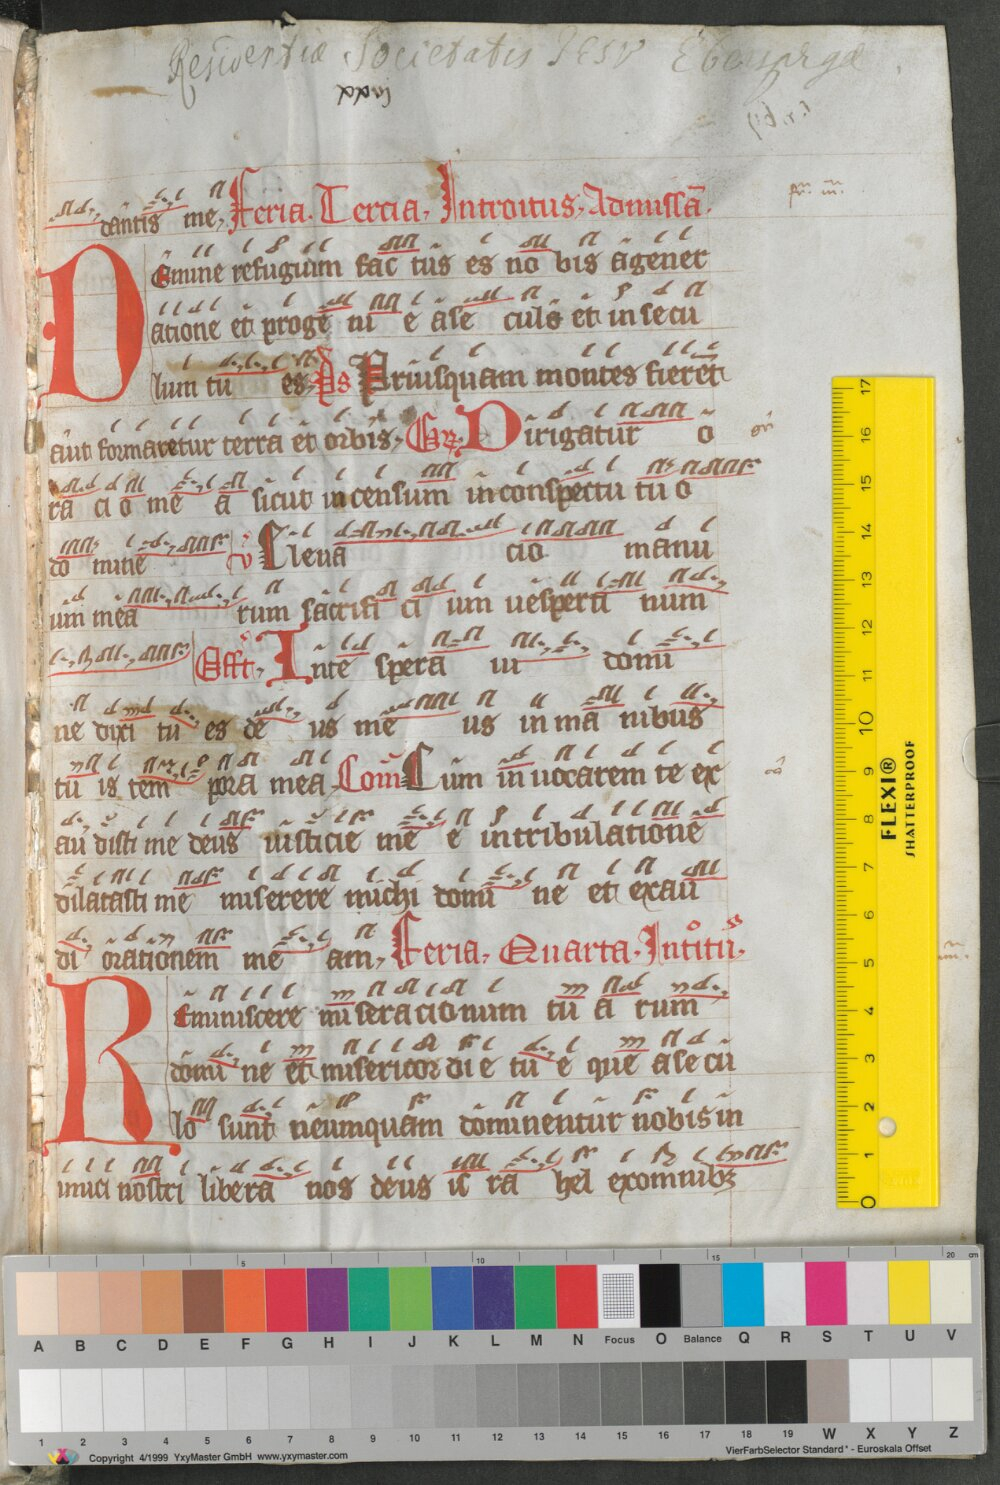 Residentia Societatis Jesv Eberspergæ
dantis me, Feria. Tercia, Introitus, Admissā.
Domine refugium fac tus es no bis agener
atione et progē ni e ase culo et in secu
lum tu es, Ps Priusquam montes fierēt
aut formaretur terra et orbis, Gr. Dirigatur o
ra ci o me a sicut incensum in conspectu tu o
do mine v Eleva cio manu
um mea rum sacrifi ci um vesperti num
Offt, In te spera vi domi
ne dixi tu es de us me us in ma nibus
tu is tem pora mea Com Cum invocarem te ex
au disti me deus iusticie me e in tribulatione
dilatasti me miserere michi domi ne et exau
di orationem me am, Feria, Quarta. Intoitū.
Reminiscere mi seracionum tu a rum
domi ne et misericordi e tu e que a secu
lo sunt neumquam dominentur nobis in
imici nostri libera nos deus is ra hel exomnibꝫ
FLEXI® SHATTERPROOF
17 16 15 14 13 12 11 10 9 8 7 6 5 4 3 2 1 0
5 10 15 20 cm
A B C D E F G H I J K L M N Focus O Balance Q R S T U V
1 2 3 4 5 6 7 8 9 10 11 12 13 14 15 16 17 18 19 W X Y Z
YXY Copyright 4/1999 YxyMaster GmbH www.yxymaster.com VierFarbSelector Standard* - Euroskala Offset